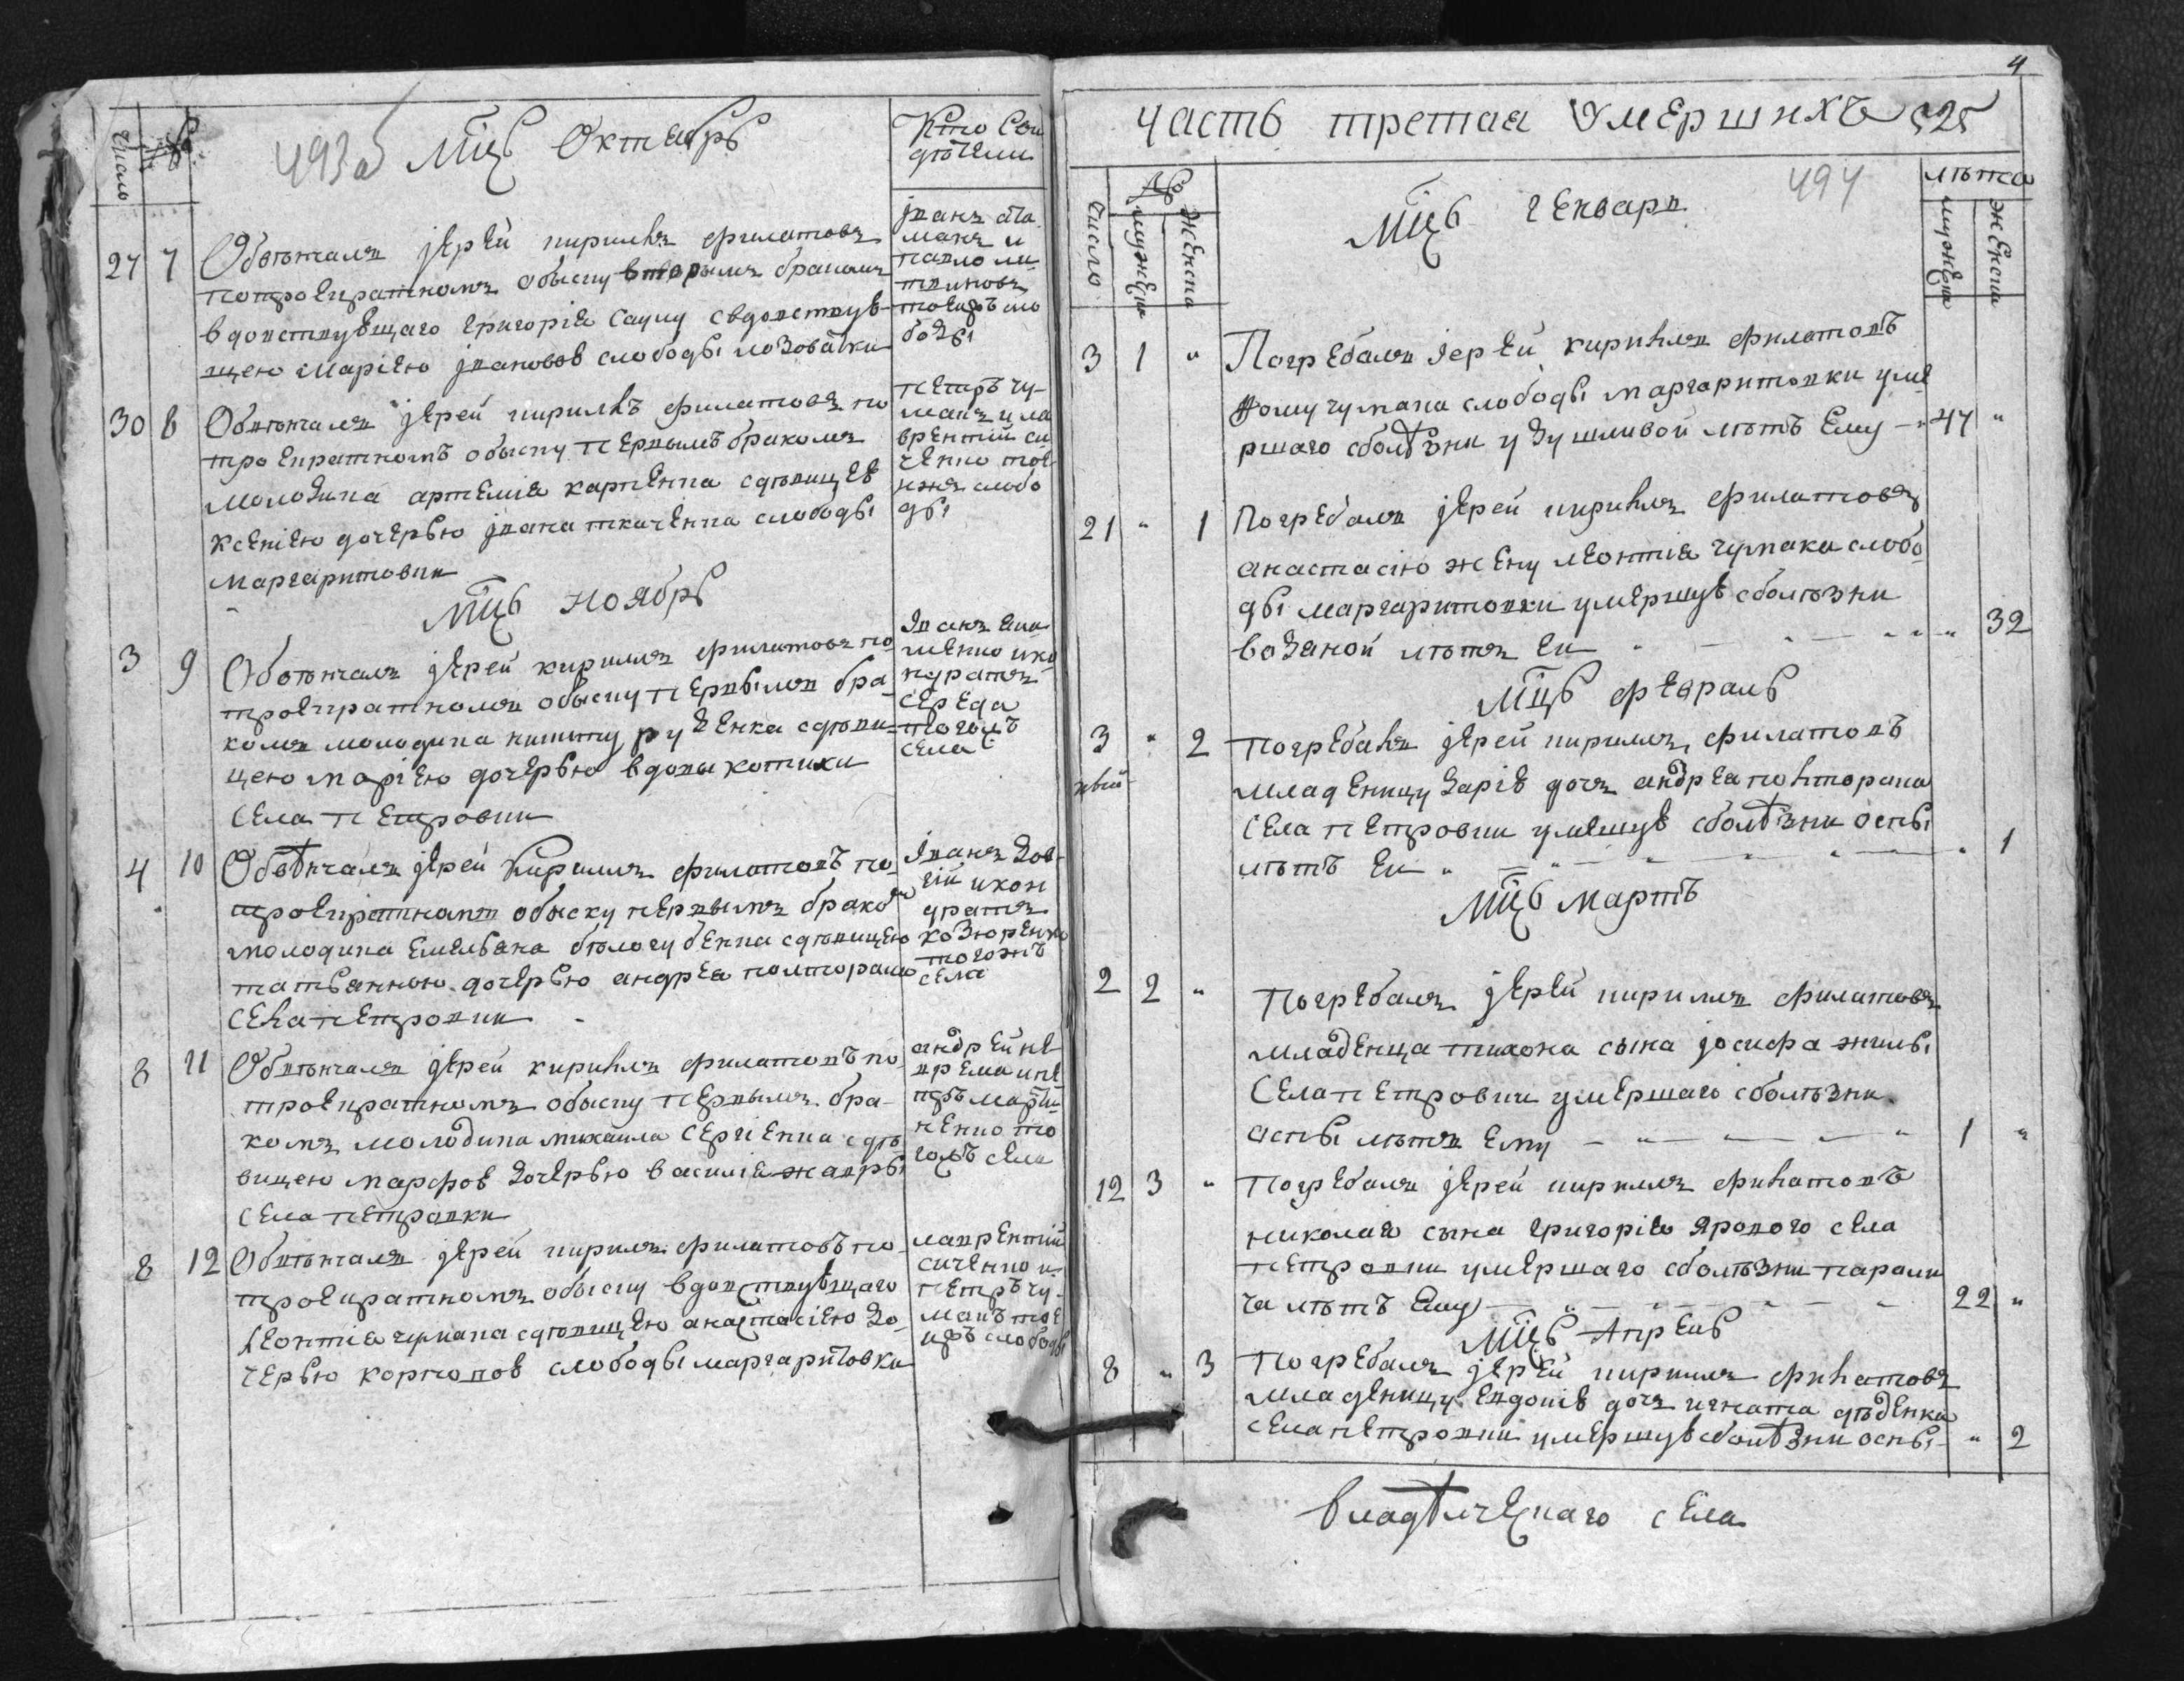 число
№
493об Мцъ Октябрь
Кто Сви
дѣтели
27 7 Обвѣнчалъ јерей кирилъ филатовъ
потроекратномъ обыску вторымъ бракомъ
вдовствующаго григорія сацку свдовствую
щею маріею јвановою слободы лозоватки
јванъ ата
манъ и
павло ли
твиновъ
тоежъ сло
боды
30 8 Обвѣнчалъ јерей кирилъ филатовъ по
троекратномъ обыску первымъ бракомъ
молодика артемія карпенка сдѣвицею
ксеніею дочерью јвана ткаченка слободы
маргаритовки
петръ чу-
макъ и ла
врентій си
ченко тоe
жъ слобо
ды
Мцъ Ноябрь
3 9 Обвѣнчалъ јерей кириллъ филатовъ по
троекратномъ обыску первымъ бра
комъ молодика никиту руденка сдѣви
цею маріею дочерью вдовы котихи
села петровки
кондратъ
середа
тогожъ
села
4 10 Обвѣнчалъ јерей Кириллъ филатовъ по
троекратномъ обыску первымъ брако
молодика емельяна бѣлогубенка сдѣвицею
татьянною дочерью андрея полторака
села петровки
јванъ дов-
гій икон
дратъ
козюренко
тогожъ
села
8 11 Обвѣнчалъ јерей кирилъ филатовъ по
троекратномъ обыску первымъ бра-
комъ молодика михаила сергіенка сдѣ
вицею марфою дочерью василія жавры
села петровки
андрей не
врема ипе
тръ марти
ненко то
гожъ села
8 12 Обвѣнчалъ јерей кирилъ филатовъ по
троекратномъ обыску вдовствующаго
леонтія чумака сдѣвицею анастасіею до
черью карповою слободы маргаритовки
лаврентій
сиченко и
петръ чу-
макъ тое
жъ слободы
4
Часть третая Умершихъ 525
494
число
№
мужеска
женска
Мцъ Генваръ
лѣта
мужеска
женска
3 1 " Погребалъ јерей кирилъ филатовъ
фому чумака слободы маргаритовки уме
ршаго сболѣзни удушливой лѣтъ Ему — " 47 "
21 " 1 Погребалъ јерей кирилъ филатовъ
анастасію жену леонтія чумака слобо
ды маргаритовки умершую сболѣзни
водяной лѣтъ Ей " — " — " " " 32
Мцъ февраль
3 " 2 погребалъ јерей кирилъ филатовъ
младеницу дарію дочъ андрея полторака
села петровки умешую сболѣзни оспы
лѣтъ Ей " — " — " — " — " 1
Мцъ Мартъ
2 2 " Погребалъ јерей кириллъ филатовъ
младенца тихона сына јосифа жилы
села петровки умершаго сболѣзни
аспы лѣтъ Ему — " — " — " 1 "
12 3 " Погребалъ јерей кириллъ филатовъ
николая сына григорію ярового села
петровки умершаго сболѣзни парали
ча лѣтъ Ему — " — " — " — 22 "
Мцъ Апрель
8 " 3 Погребалъ јерей кирилъ филатовъ
младеницу евдокію дочъ игната дѣденка
села петровки умершую сболѣзни оспы " 2
владѣлческаго села